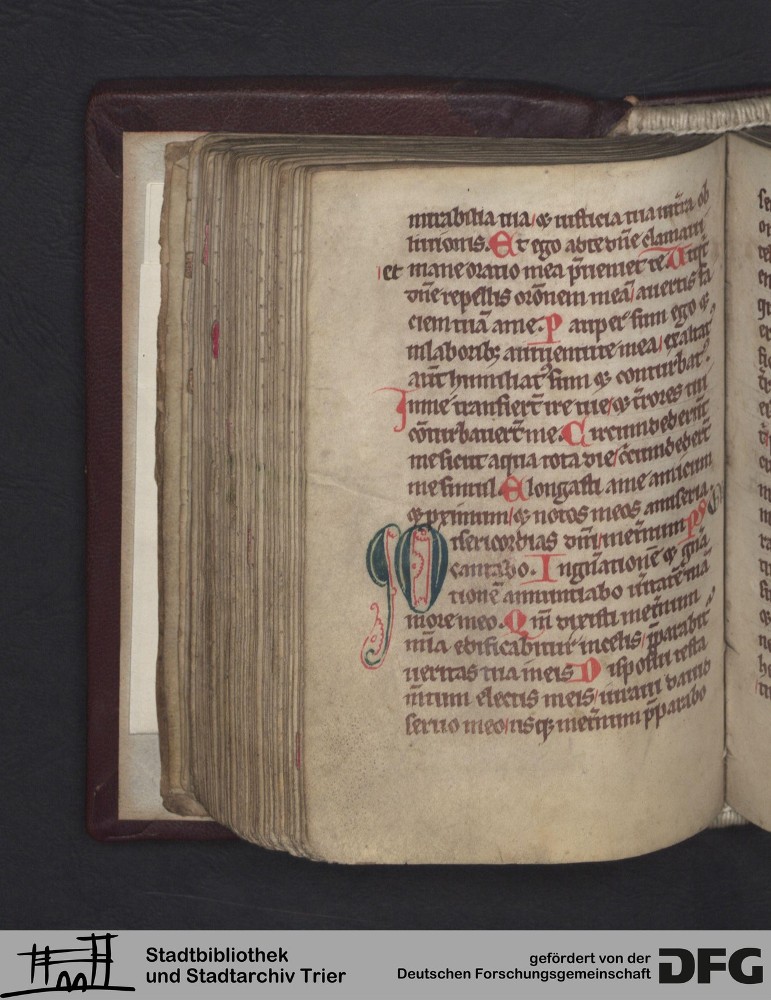 mirabilia tua / ⁊ iusticia tua in tr̄a ob
liuionis. Et ego ad te dn̄e clamaui
et mane oratio mea p̄ueniet te. Ut qd
dn̄e repellis orōnem meā / auertis fa
ciem tuā a me. Pauper sum ego ⁊
in laborib; a iuuentute mea / exaltat᷒
aūt humiliat᷒ sum ⁊ conturbat᷒.
In me transiert̄ ire tue / ⁊ t̄rores tui
cōturbauert̄ me. Circumdedert̄
me sicut aqua tota die / c̄cumdedert̄
me simul. Elongasti a me amicum
⁊ p̱ximum / ⁊ notos meos a miseria.
Misericordias dn̄i / in et̄num ps
cantabo. In gn̄ationē ⁊ gn̄a
tionē annuntiabo u̅itatē tuā
in ore meo. Qm̄ dixisti in et̄num
mīa edificabitur in celis / p̄parabit᷒
ueritas tua in eis. Disposui testa
m̄tum electis meis / iuraui dauid
seruo meo / usq; in et̄num p̄parabo
Stadtbibliothek
und Stadtarchiv Trier
gefördert von der
Deutschen Forschungsgemeinschaft
DFG